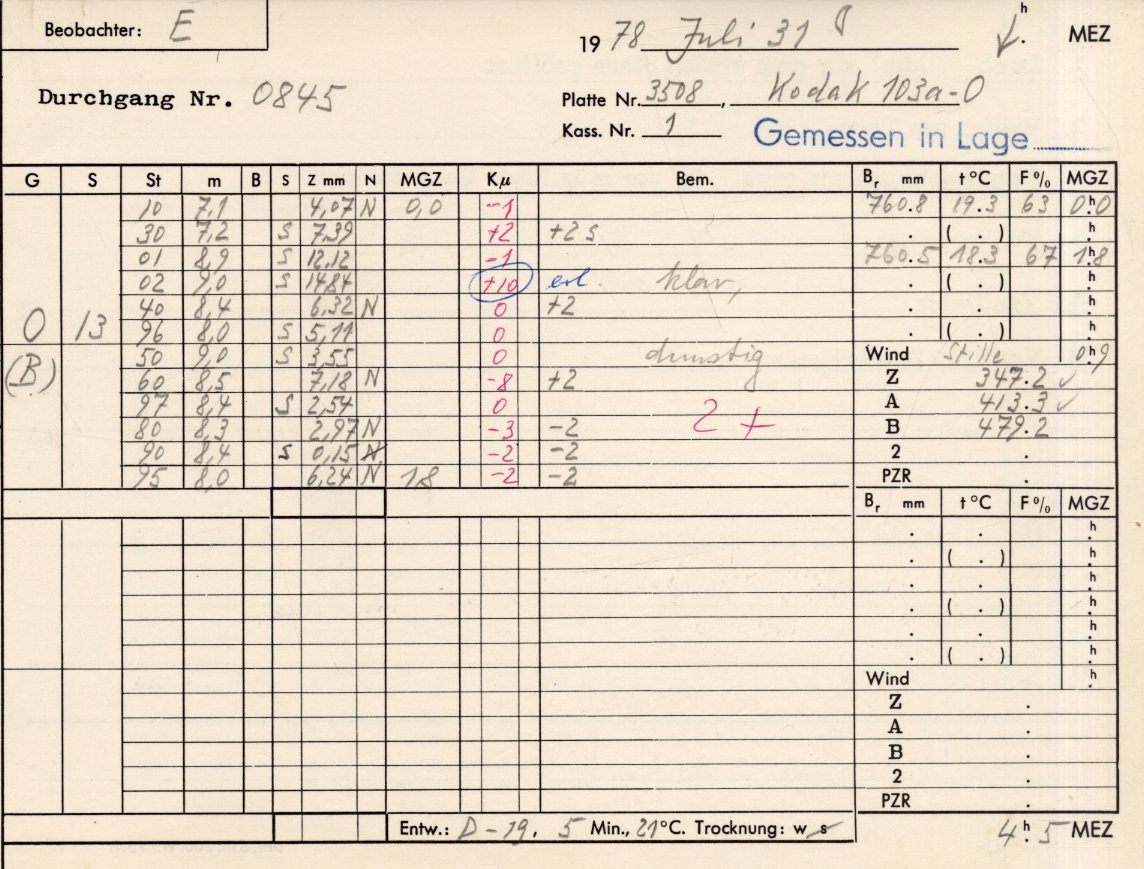 Beobachter: E
19 78 Juli 31 h MEZ
Durchgang Nr. 0845
Platte Nr. 3508, Kodak 103a-O
Kass. Nr. 1 Gemessen in Lage
G S St m B S Z mm N MGZ Kμ Bem. Br mm t °C F % MGZ
10 7,1 4,07 N 0,0 -1 760.8 19.3 63 0h.0
30 7,2 S 7,39 +2 +2 s . ( . ) h.
01 8,9 S 12,12 -1 760.5 18.3 67 1h.8
02 9,0 S 14,84 +10 erl. klar, . ( . ) h.
40 8,4 6,32 N 0 +2 . . h.
0 13 96 8,0 S 5,11 0 . ( . ) h.
(B) 50 9,0 S 3,55 0 dunstig Wind Stille 0h.9
60 8,5 7,18 N -8 +2 Z 347.2 ✓
97 8,4 S 2,54 0 2 + A 413.3 ✓
80 8,3 2,97 N -3 -2 B 479.2
90 8,4 S 0,15 N -2 -2 2 .
95 8,0 6,24 N 1,8 -2 -2 PZR .
Br mm t °C F % MGZ
. . h.
. ( . ) h.
. . h.
. ( . ) h.
. . h.
. ( . ) h.
Wind h.
Z .
A .
B .
2 .
PZR .
Entw.: D-19, 5 Min., 21°C. Trocknung: w s 4h.5 MEZ